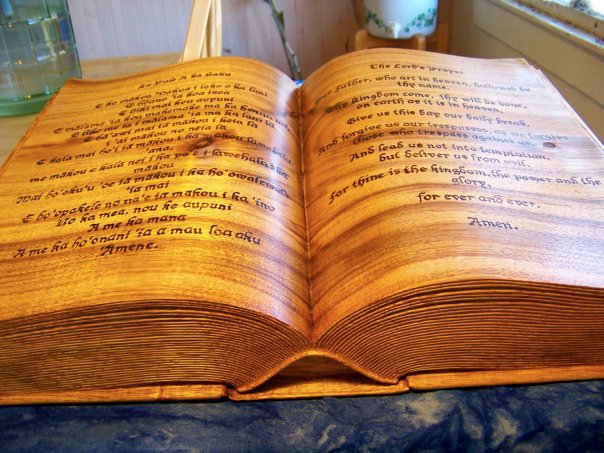 Ka Pule A Ka Haku
E ko mākou Makua i loko o ka lani
E hōano 'ia kou inoa
E hiki mai kou aupuni
E mālama 'ia kou makemake ma ka honua nei
E like me ia i mālama 'ia ma ka lani lā
mai iā mākou i kēia lā
i 'ai mākou no nēia lā
E kala mai ho'i iā mākou i kā mākou lawehala
'ana
me mākou e kala nei i ka po'e i lawehala i kā
mākou
Mai ho'oku'u 'oe iā mākou i ka ho'owalewale
'ia mai
E ho'opakele no na'e iā mākou i ka 'ino
No ka mea, nou ke aupuni
A me ka mana
A me ka ho'onani 'ia a mau loa aku
'Amene.
The Lord's Prayer
Our Father, who art in heaven, hallowed be
thy name.
Thy Kingdom come, thy will be done,
on earth as it is in heaven.
Give us this day our daily bread.
And forgive us our trespasses, as we forgive
those who trespass against us.
And lead us not into temptation,
but deliver us from evil.
For thine is the kingdom, the power and the
glory,
for ever and ever.
Amen.